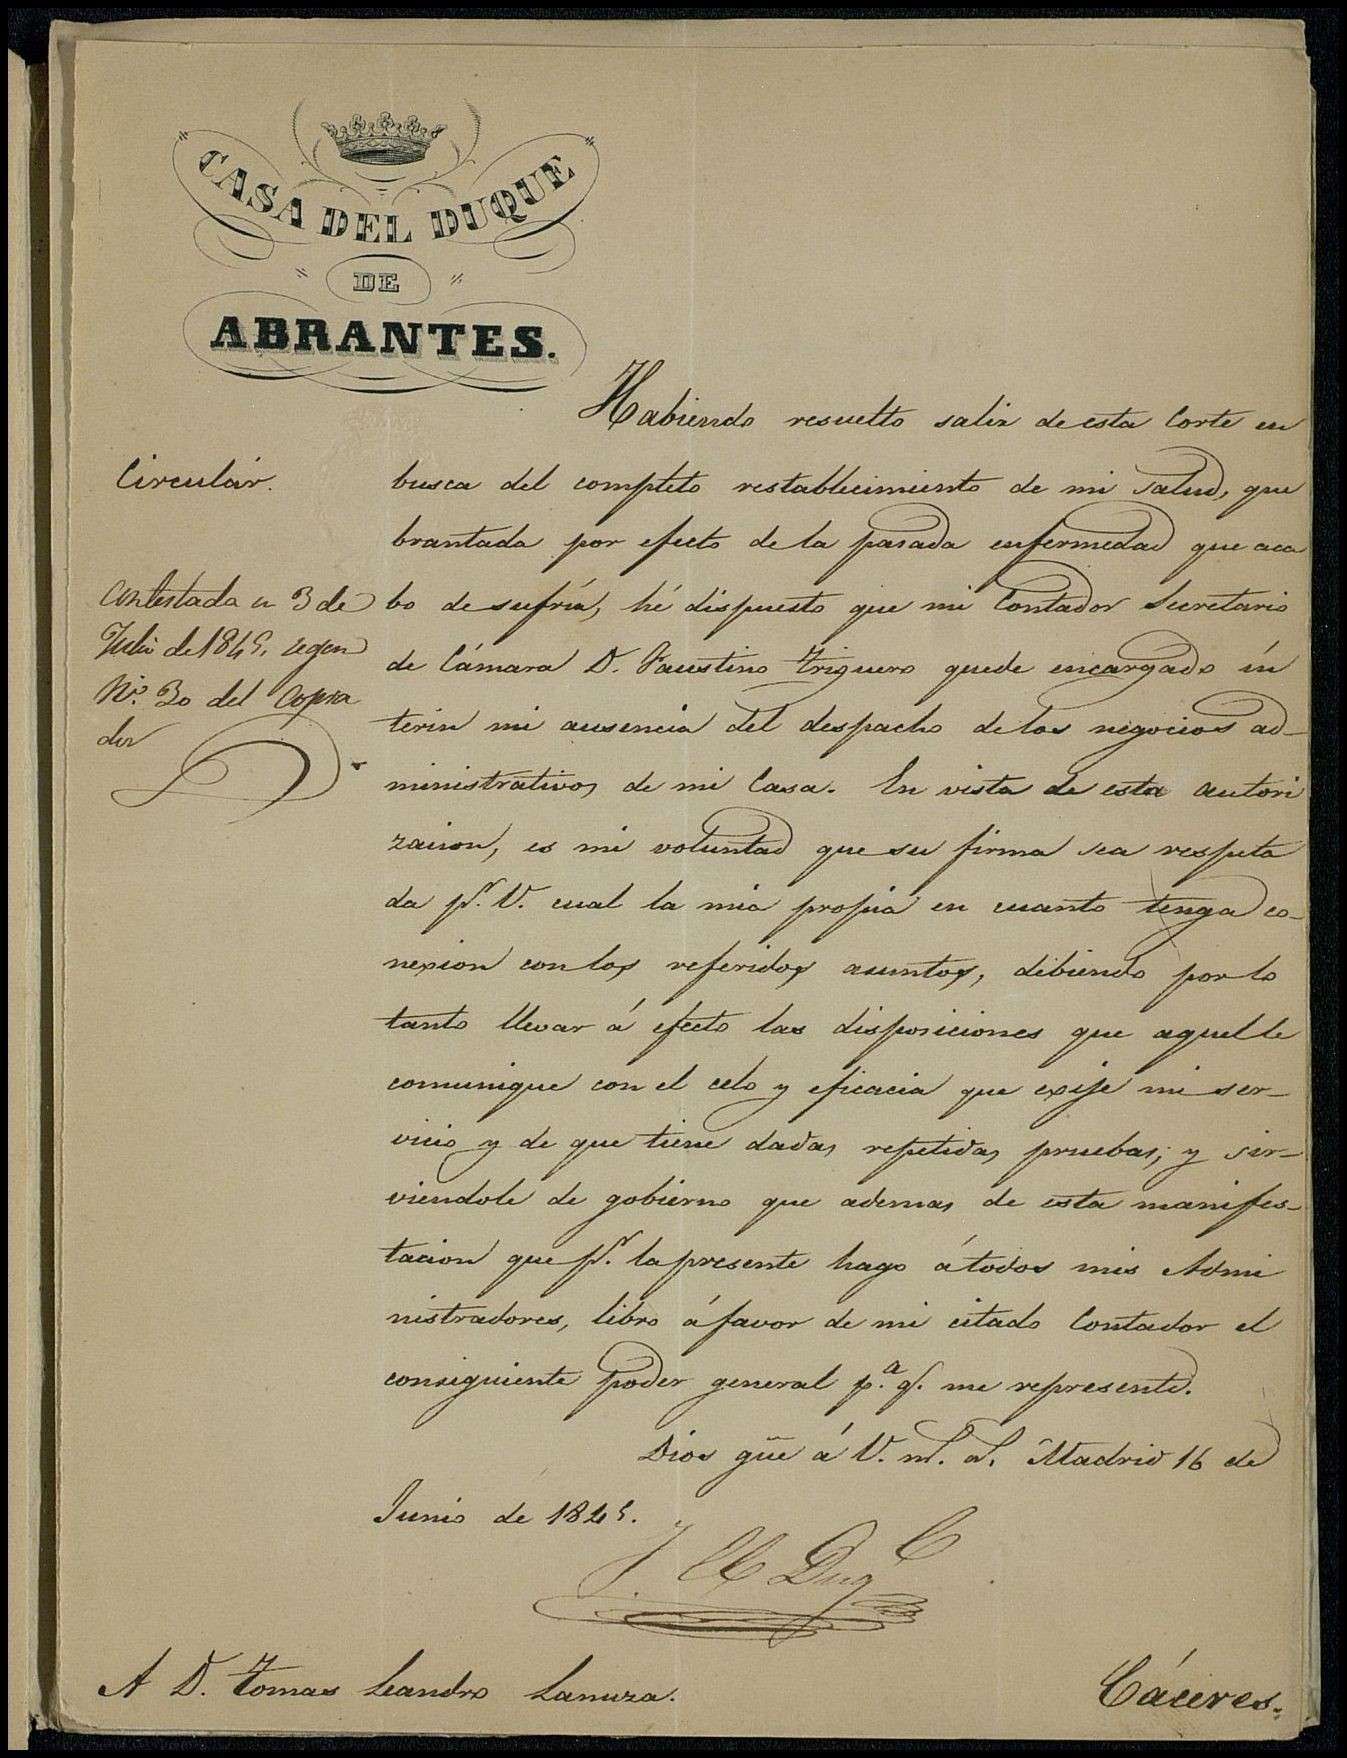 CASA DEL DUQUE
DE
ABRANTES.
Habiendo resuelto salir de esta Corte en
Circular.
busca del completo restablecimiento de mi salud, que
brantada por efecto de la pasada enfermedad que aca
bo de sufrir, hé dispuesto que mi Contador Secretario
de Cámara D. Faustino Triguero quede encargado ín
terin mi ausencia del despacho de los negocios ad-
ministrativos de mi Casa. En vista de esta autori
zacion, es mi voluntad que su firma sea respeta
da pr. V. cual la mia propia en cuanto tenga co-
nexion con los referidos asuntos, debiendo por lo
tanto llevar á efecto las disposiciones que aquel le
comunique con el celo y eficacia que exije mi ser-
vicio y de que tiene dadas repetidas pruebas; y sir-
viendole de gobierno que ademas de esta manifes-
tacion que pr. la presente hago á todos mis Admi
nistradores, libro á favor de mi citado Contador el
consiguiente poder general p.a q. me represente.
Dios gũe á V. m.s a.s Madrid 16 de
Junio de 1845.
Contestada en 3 de
Julio de 1845, segun
No. 30 del Copia
dor
A D. Tomas Leandro Lanuza.
Cáceres.